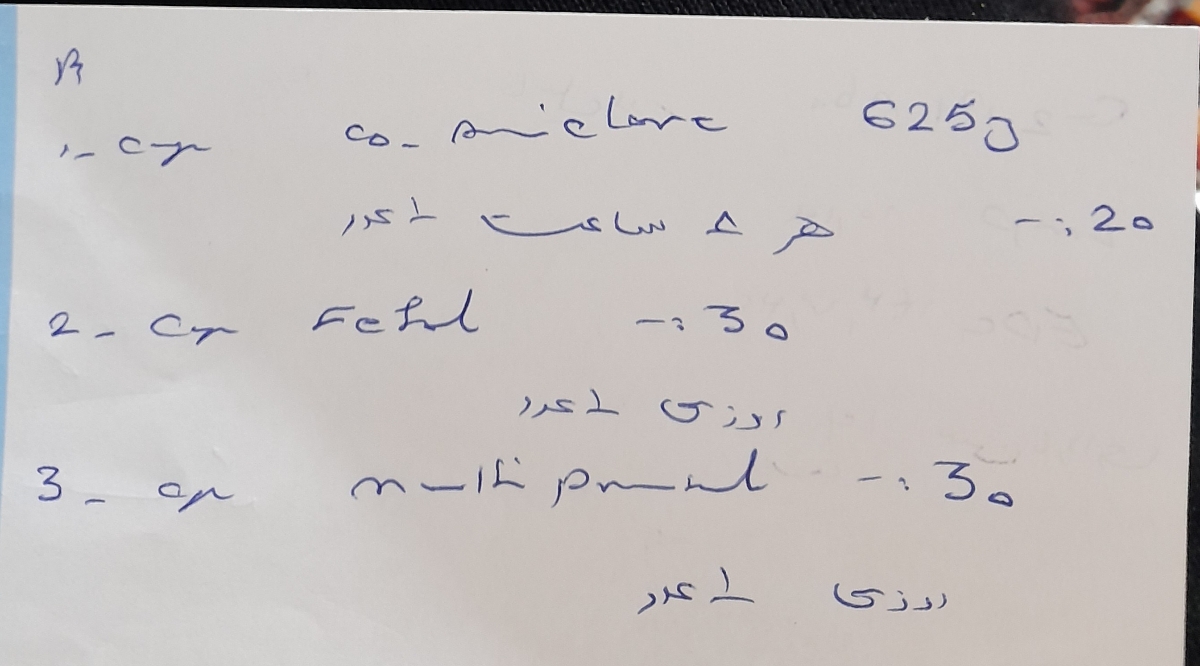 R
1- Cap co-amiclave 625g
هر ۸ ساعت ۱ عدد -: 20
2- Cap Fefol -: 30
روزی ۱ عدد
3- cap multi prenatal -: 30
روزی ۱ عدد